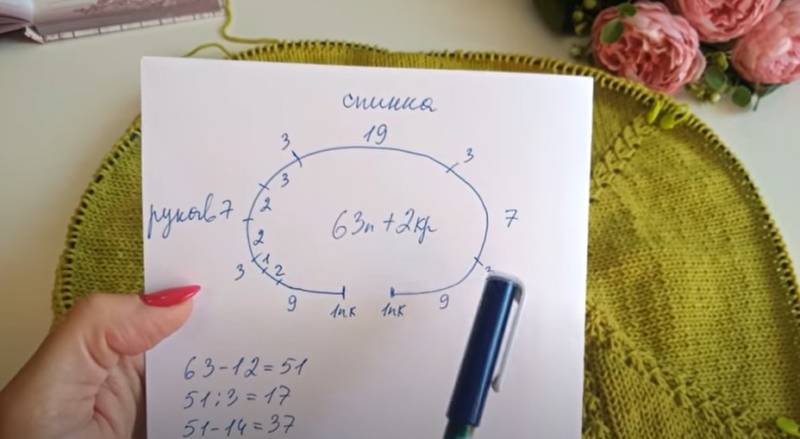 спинка
19
3
3
3
рукав 7
2
2
63п + 2кр
7
3
1
2
9
1пк
1пк
9
63-12=51
51:3=17
51-14=37